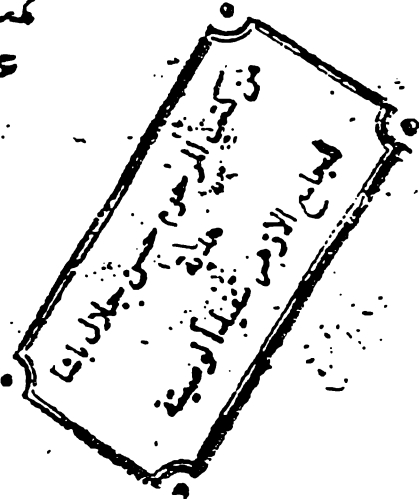 من كتب المرحوم حسن جلال باشا
هدية
للجامع الازهر تنفيذاً لوصيته